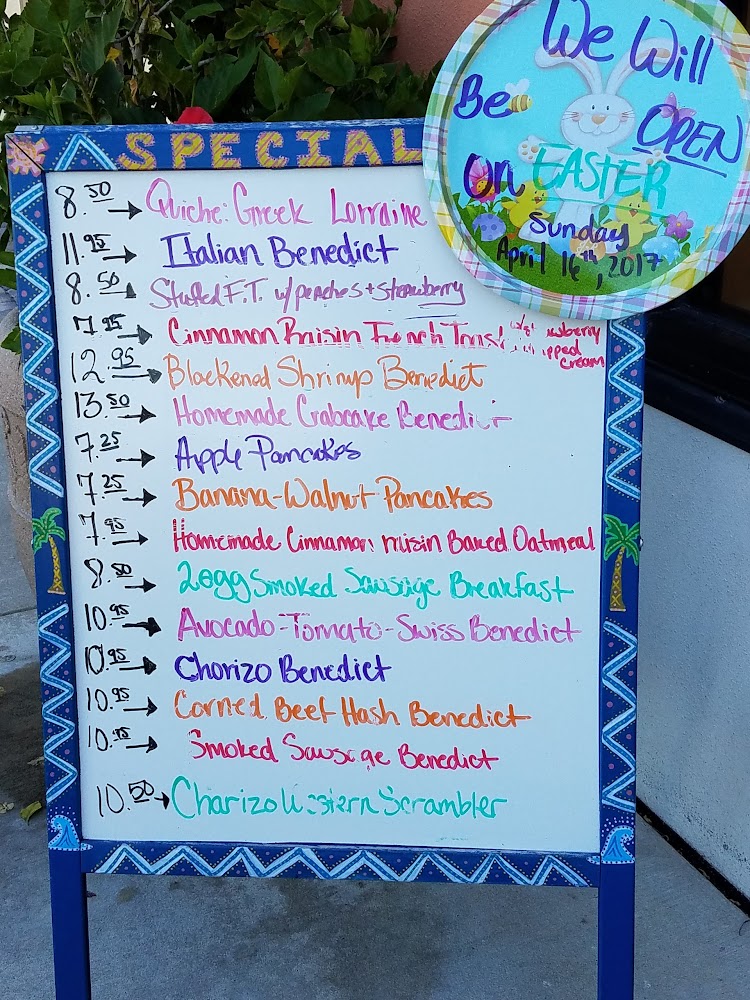 SPECIAL
We Will
Be OPEN
On EASTER
Sunday
April 16th, 2017
8.50 → Quiche: Greek Lorraine
11.95 → Italian Benedict
8.50 → Stuffed F.T. w/ peaches + strawberry
7.95 → Cinnamon Raisin French Toast
cream
12.95 → Blackened Shrimp Benedict
13.50 → Homemade Crabcake Benedict
7.25 → Apple Pancakes
7.25 → Banana-Walnut Pancakes
7.95 → Homemade Cinnamon raisin Baked Oatmeal
8.50 → 2 egg Smoked Sausage Breakfast
10.95 → Avocado-Tomato-Swiss Benedict
10.95 → Chorizo Benedict
10.95 → Corned Beef Hash Benedict
10.95 → Smoked Sausage Benedict
10.50 → Charizo Western Scrambler